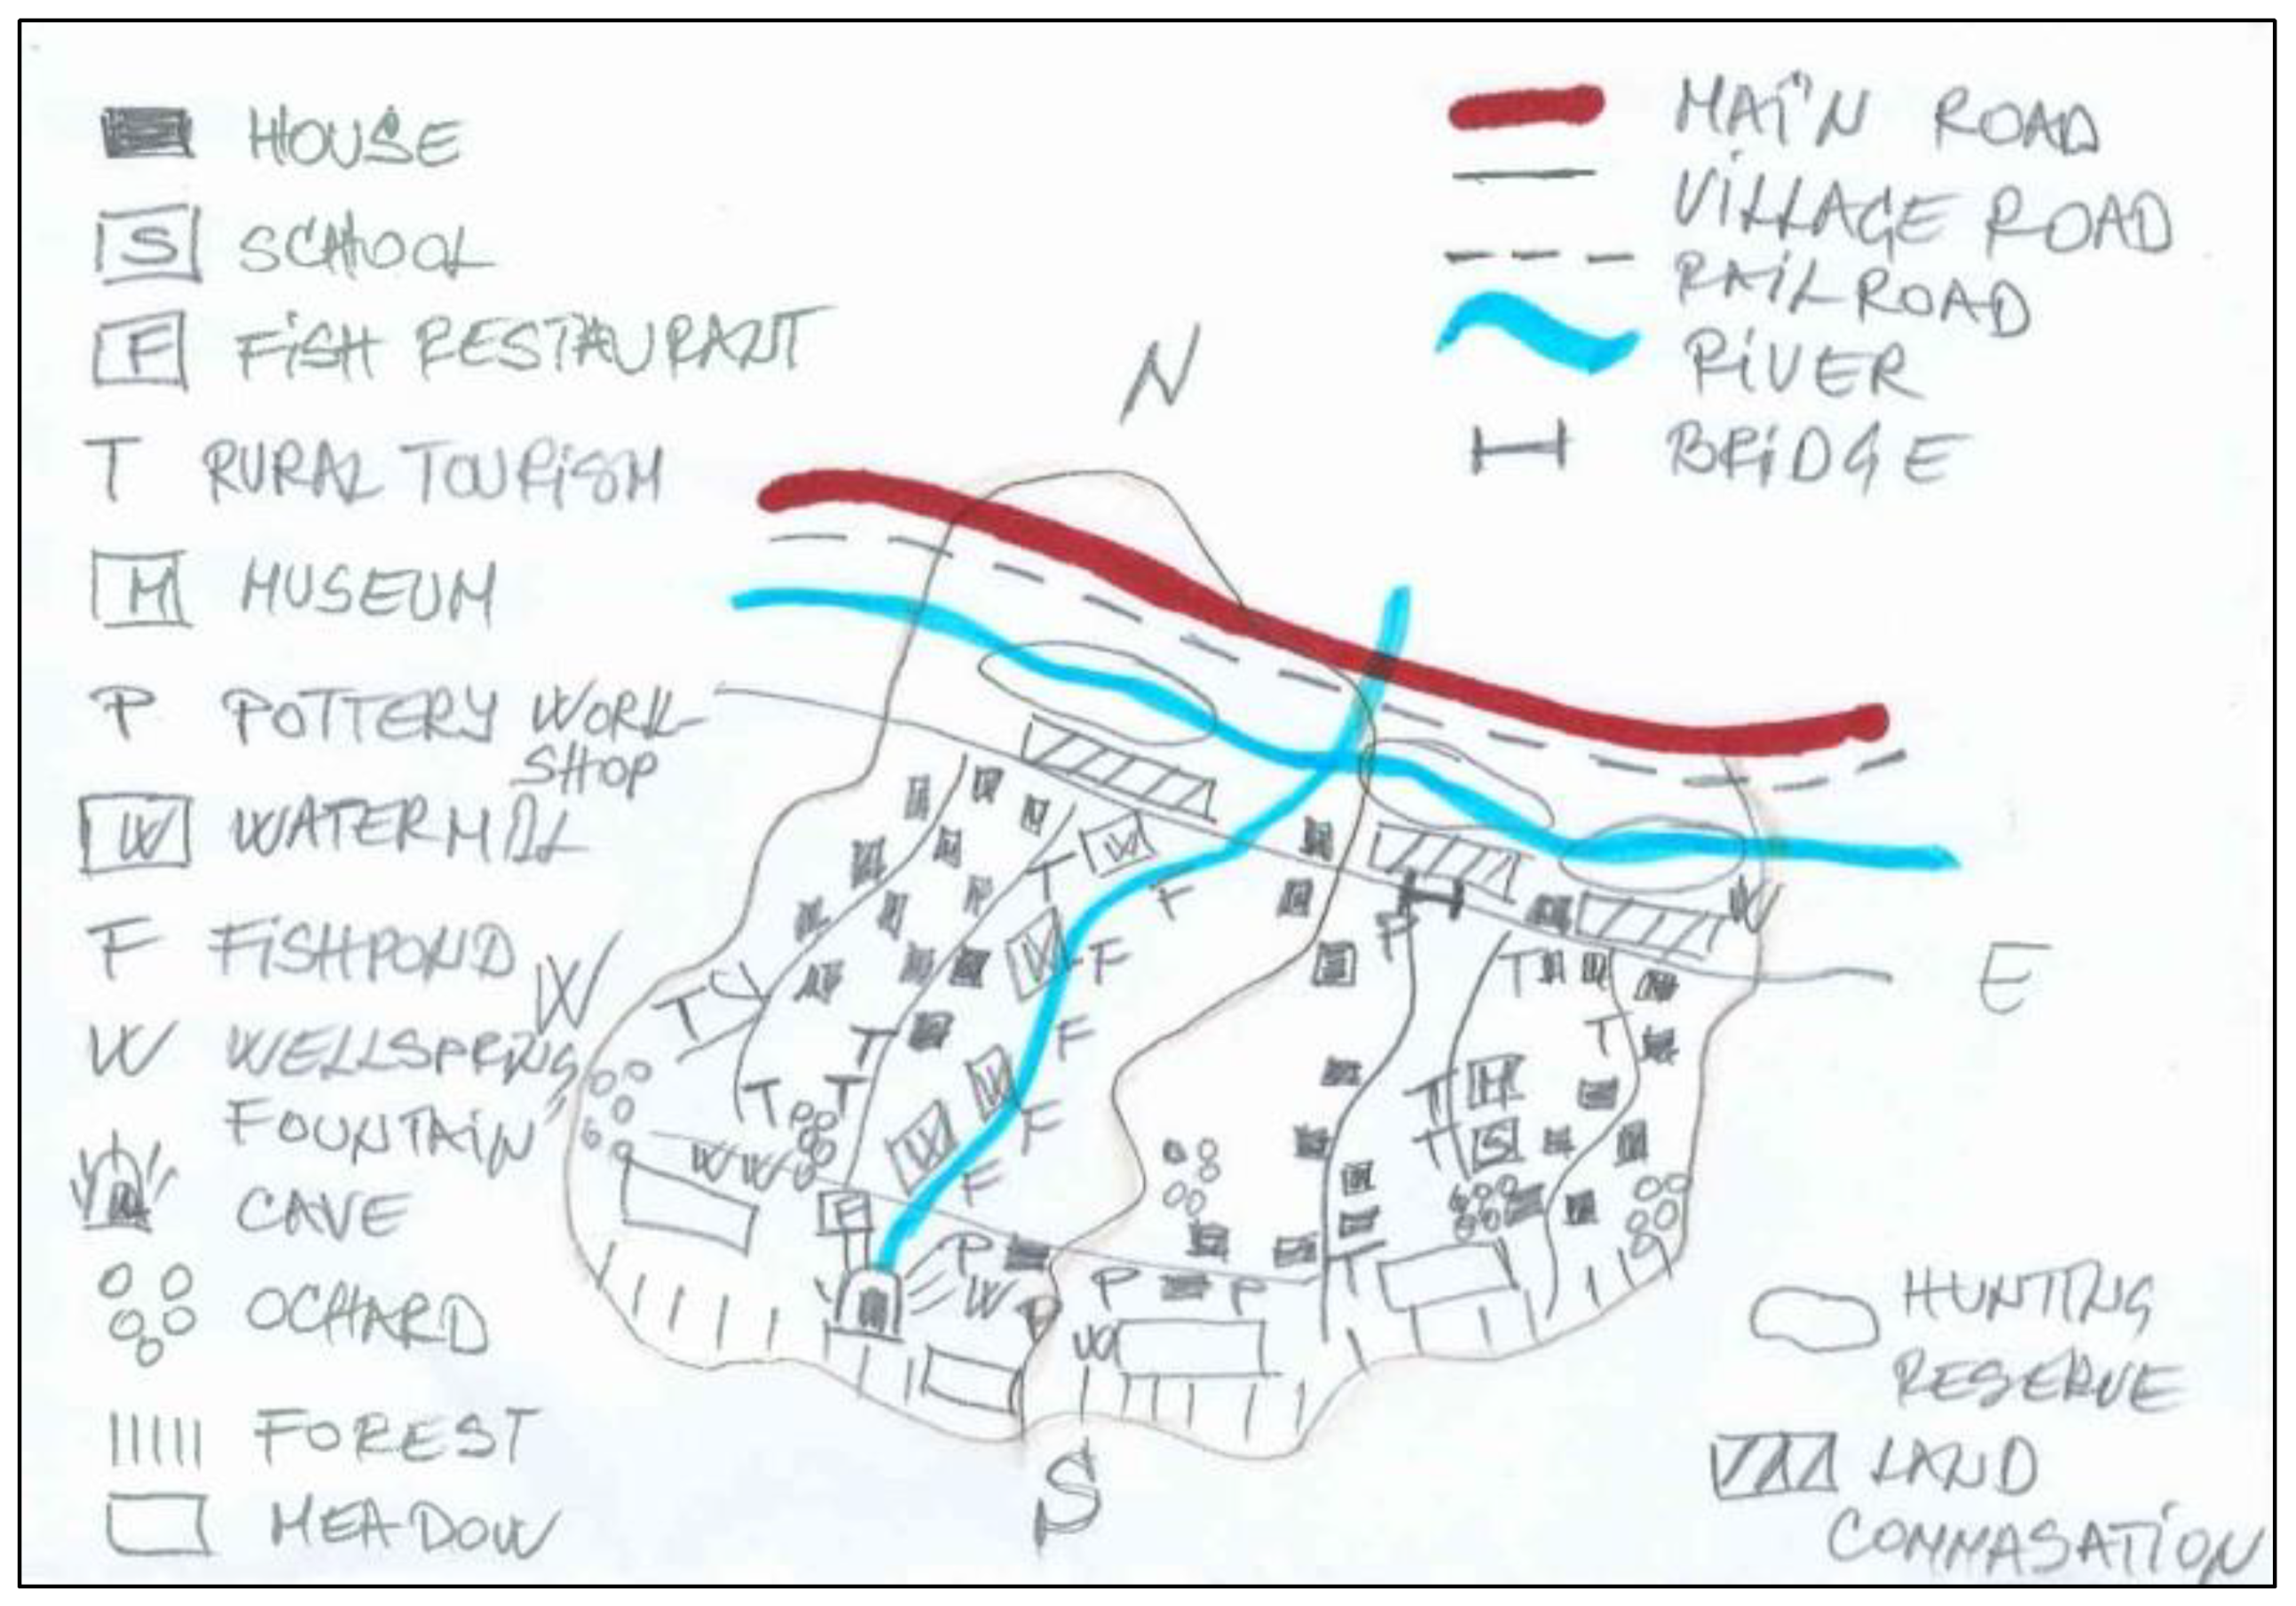 HOUSE
S SCHOOL
F FISH RESTAURANT
T RURAL TOURISM
M MUSEUM
P POTTERY WORK-
SHOP
W WATERMILL
F FISHPOND
W WELLSPRING
FOUNTAIN
CAVE
OCHARD
FOREST
MEADOW
MAIN ROAD
VILLAGE ROAD
RAILROAD
RIVER
BRIDGE
N
W
E
S
W
T
F
W
F
F
T
T
T
W
F
T
T
T
F
T
M
W
F
T
S
W W
W
F
F
P
W
P
P
P
T
W
HUNTING
RESERVE
LAND
COMMASATION